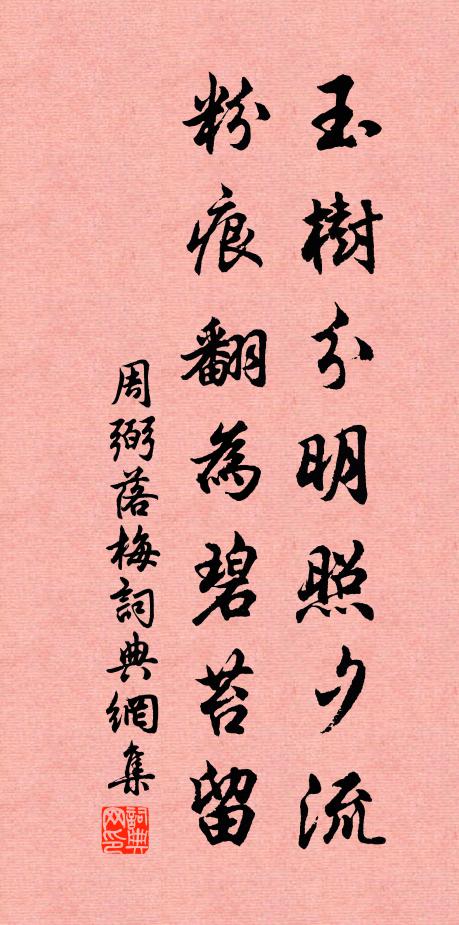 玉樹分明照夕流
粉痕翻為碧苔留
周弼落梅詞典網集
詞典網印